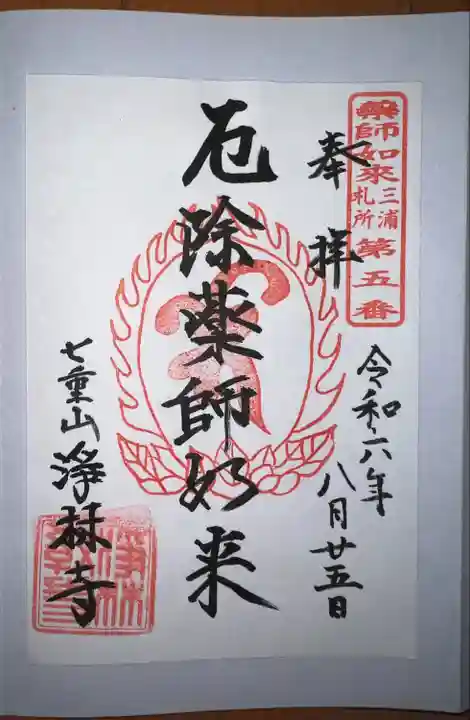 薬師如來
三浦
札所
第五番
奉拝
令和六年
八月廿五日
厄除薬師如来
七重山 淨林寺